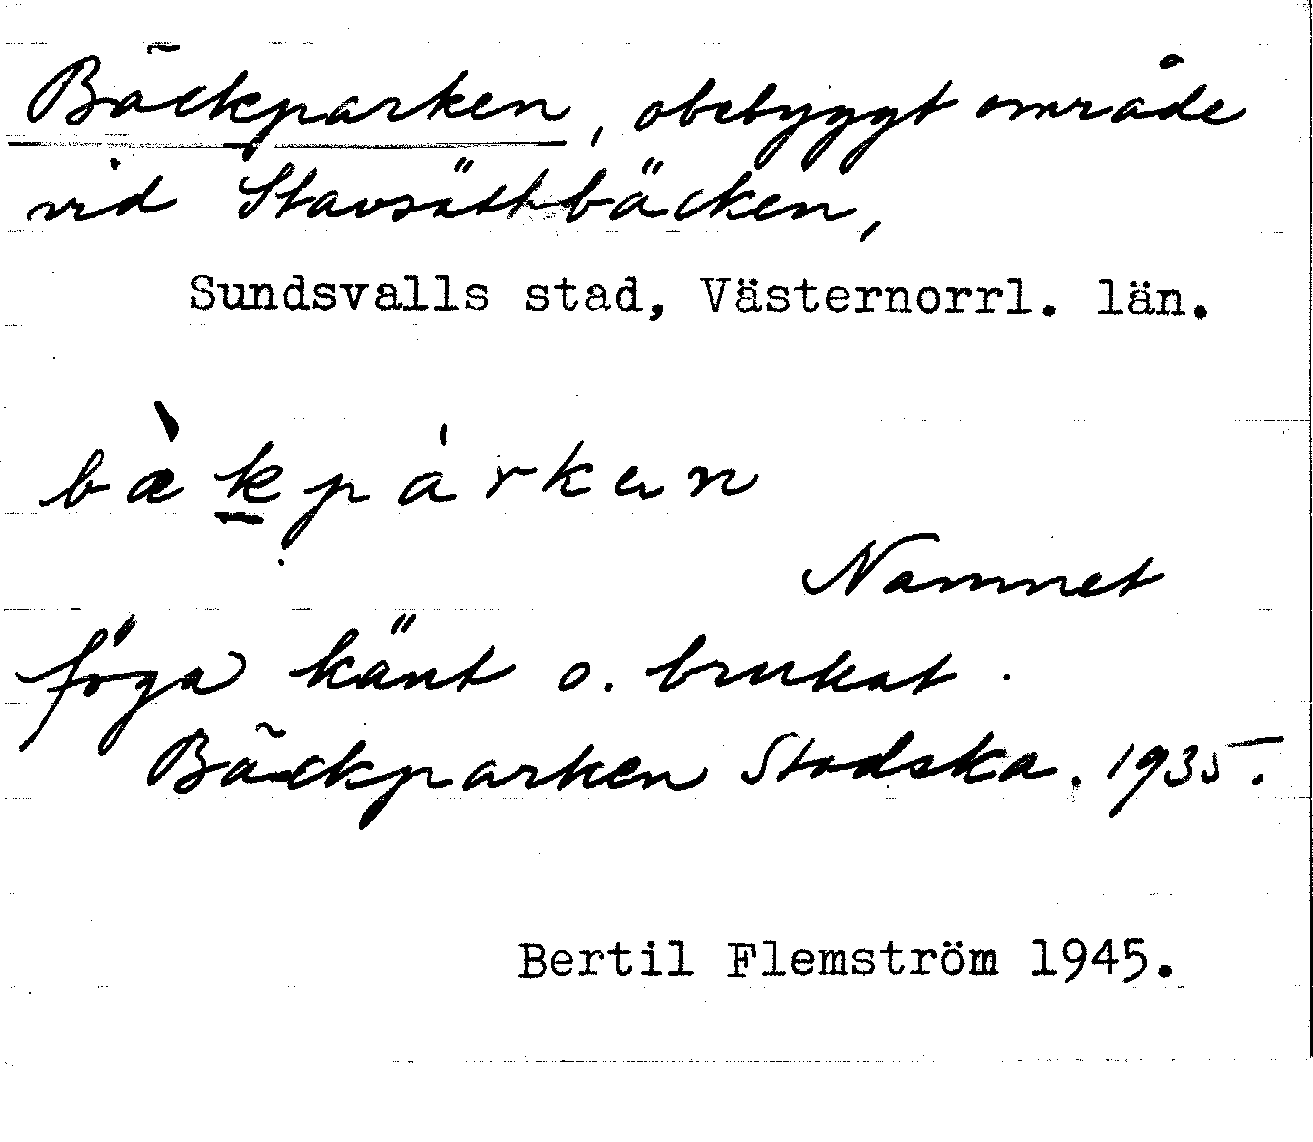 Bäckparken, obebyggt område
vid Stavsättbäcken,
Sundsvalls stad, Västernorrl. län.
bæ̀kpárkɐn
Namnet
föga känt o. brukat.
Bäckparken Stadska. 1935.
Bertil Flemström 1945.